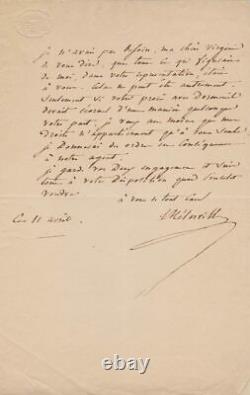 je n'avais pas besoin, ma chère Virginie
de vous dire, que tout ce qui
de moi, dans votre représentation, était
à vous. Cela ne peut être autrement.
Seulement si votre procès avec
devait d'une manière quelconque
votre part, je veux au moins que mes
droits n'appartiennent qu'à vous seule
je donnerai des ordres en conséquence
à notre agent.
je garde vos deux et suis
tout à votre disposition quand
voudra
à vous de tout cœur
Ce 11 avril.